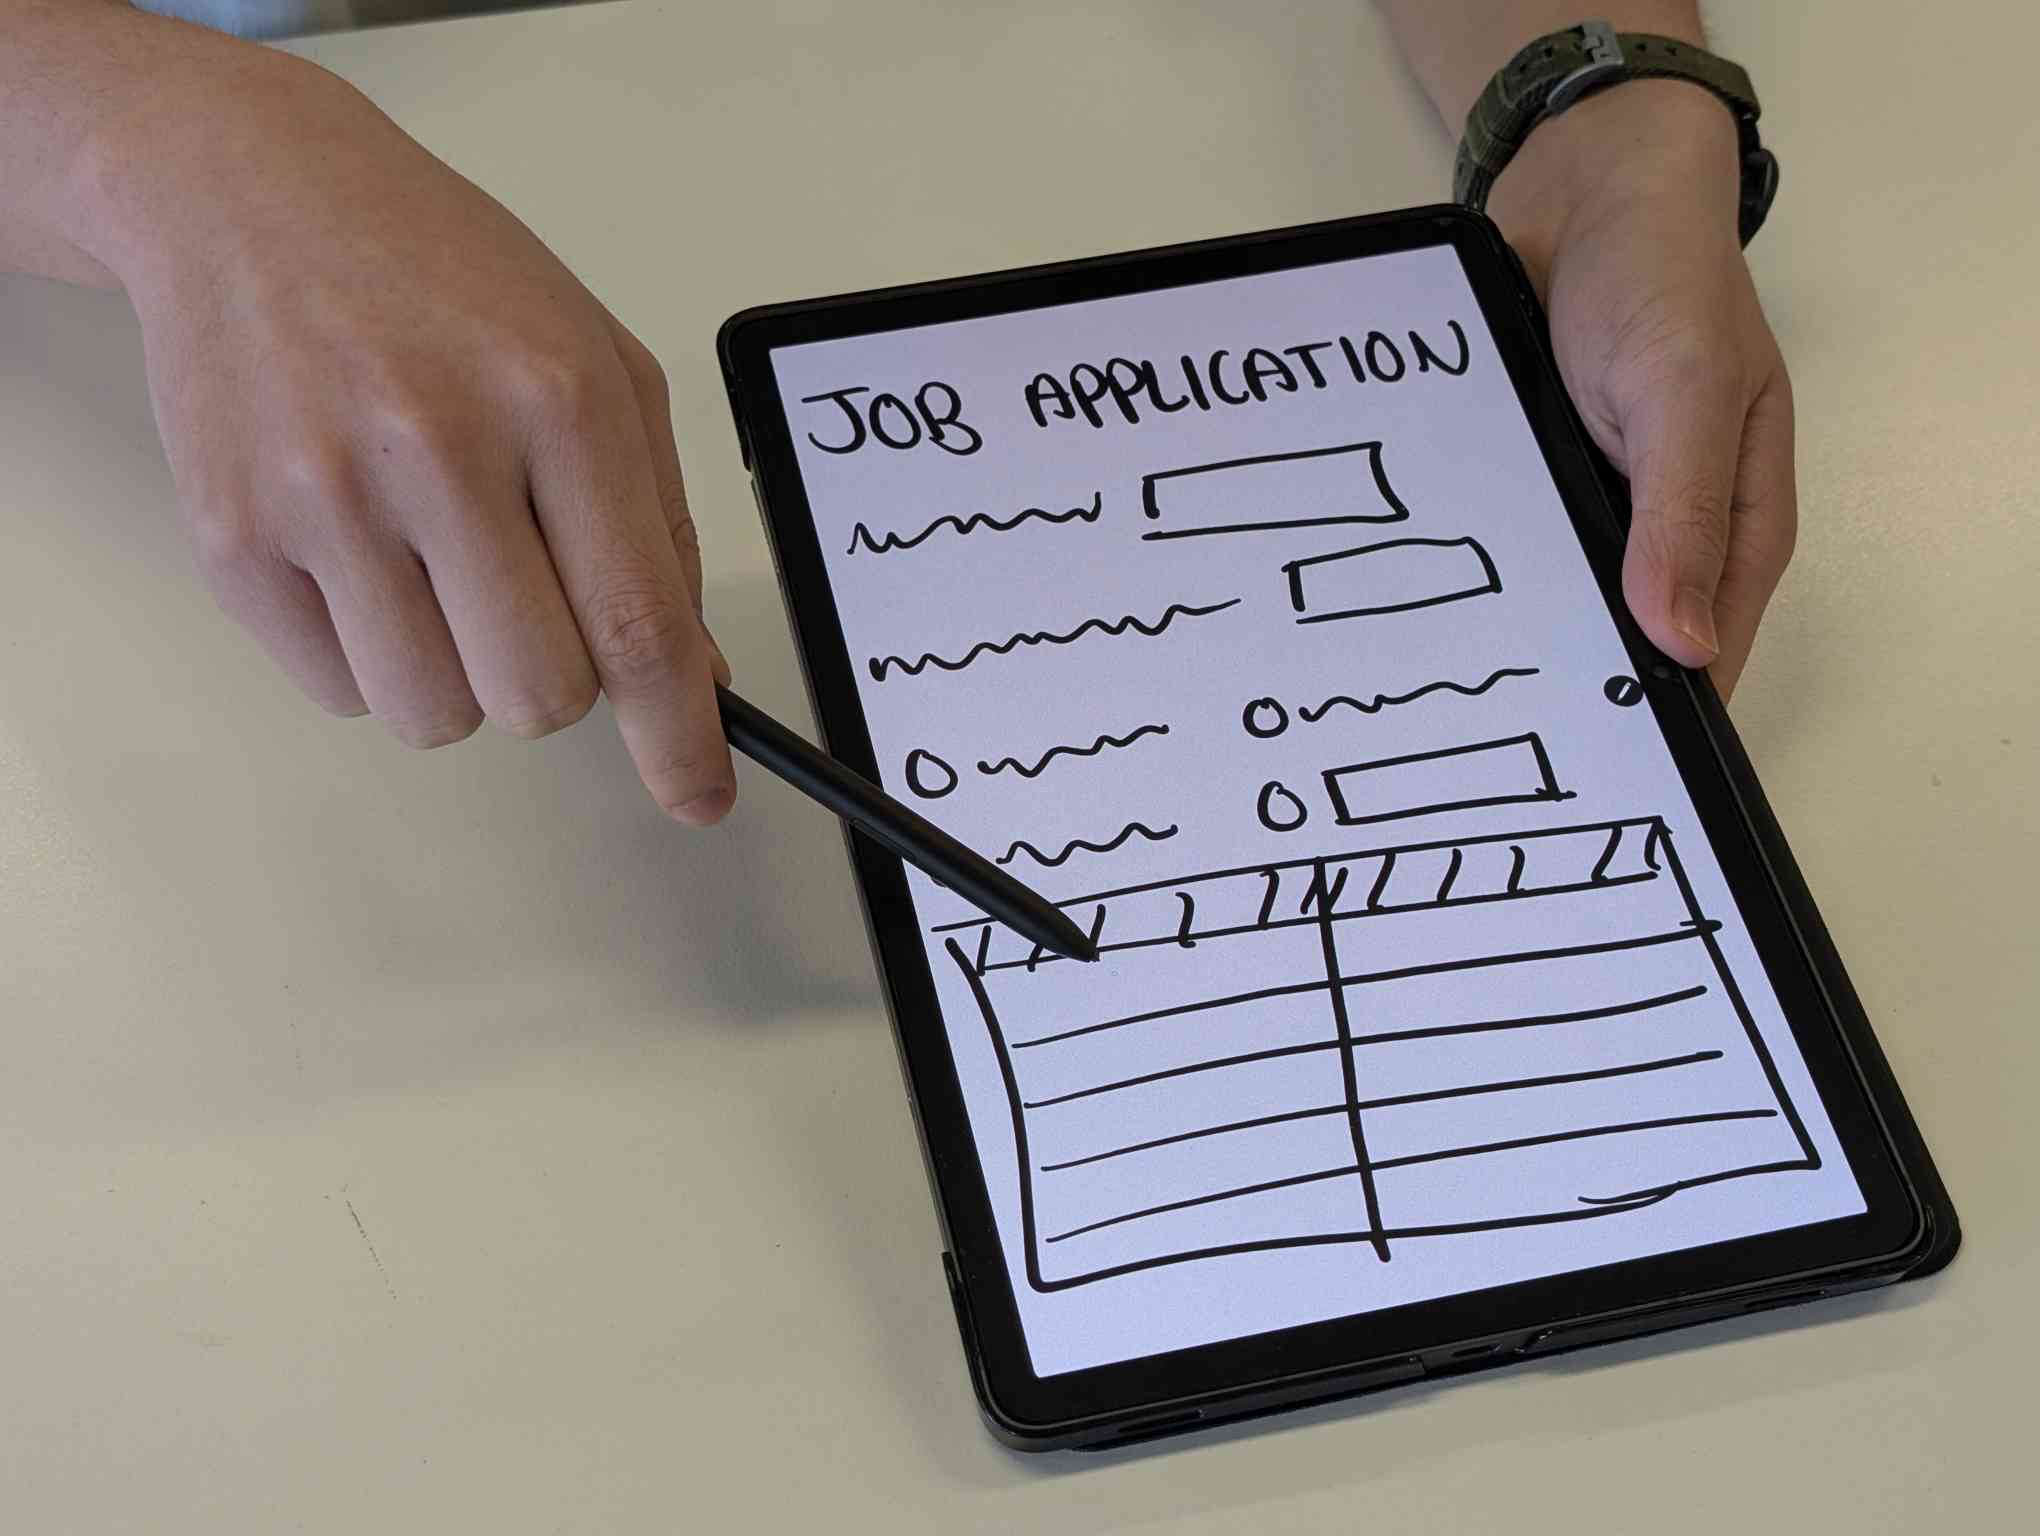 JOB APPLICATION